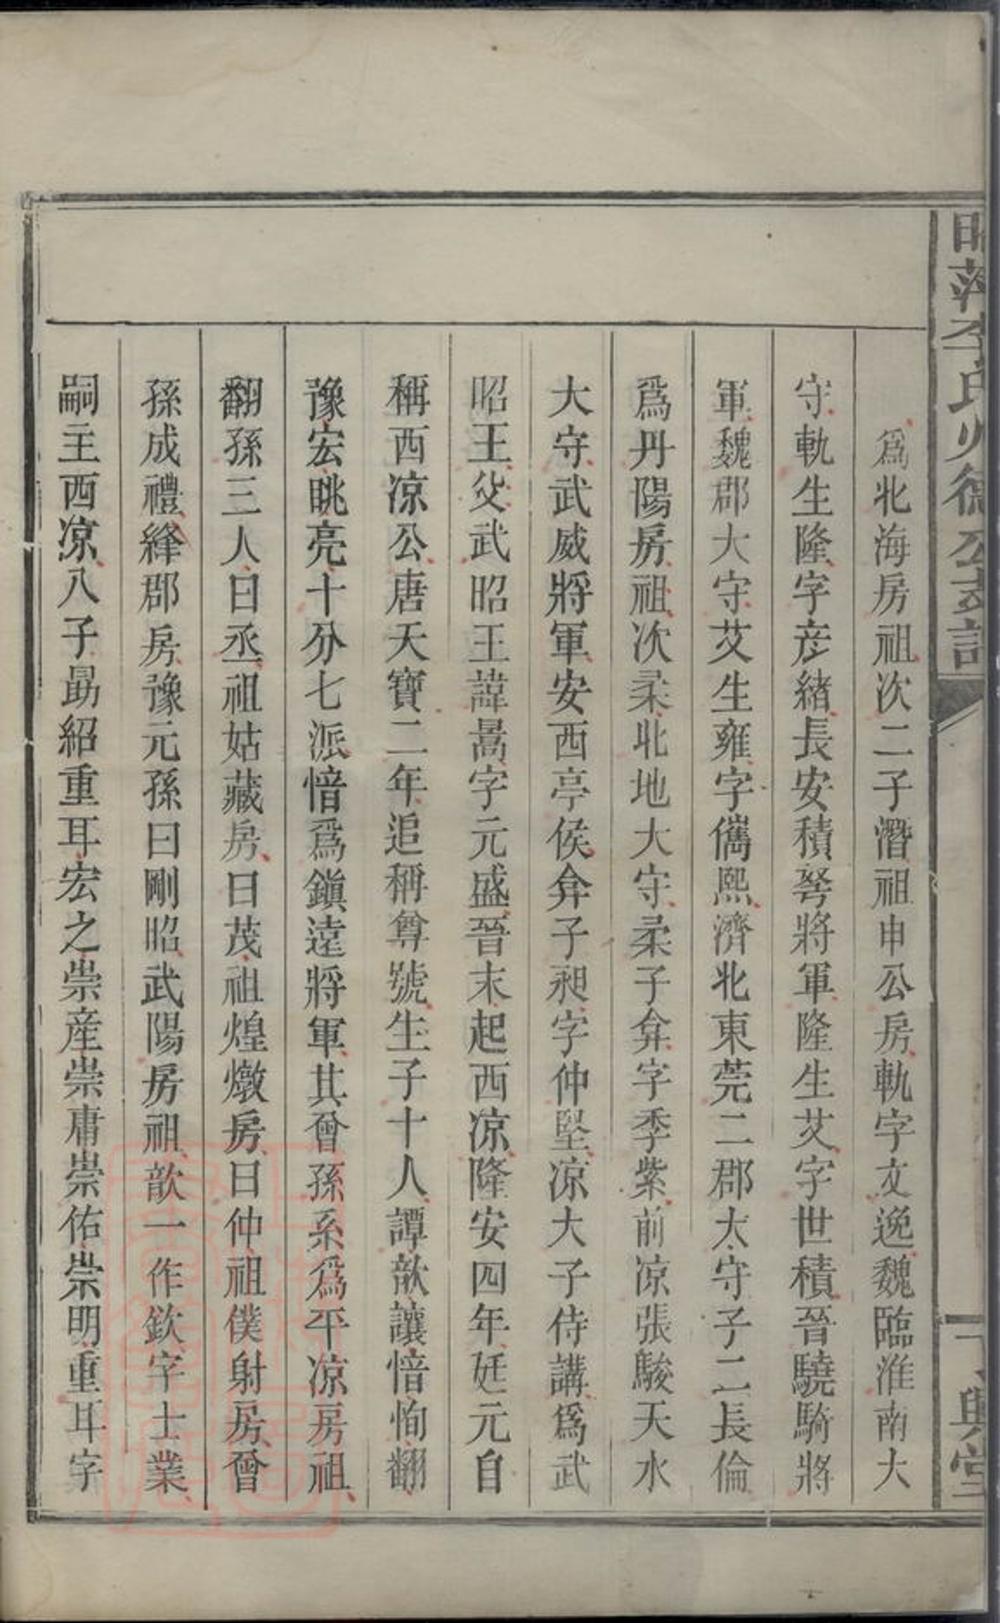 昭萍李氏火德公支譜
為北海房祖次二子潛祖申公房軌字文逸魏臨淮南大
守軌生隆字彦緒長安積弩將軍隆生艾字世積晉驍騎將
軍魏郡大守艾生雍字儁熙濟北東莞二郡太守子二長倫
為丹陽房祖次柔北地大守柔子弇字季紫前凉張駿天水
大守武威將軍安西亭侯弇子昶字仲堅凉大子侍講為武
昭王父武昭王諱暠字元盛晉末起西凉隆安四年廷元自
稱西凉公唐天寶二年追稱尊號生子十人譚歆讓愔恂翻
豫宏眺亮十分七派愔為鎮遠將軍其曾孫系為平凉房祖
翻孫三人曰丞祖姑藏房曰茂祖煌燉房曰仲祖僕射房曾
孫成禮絳郡房豫元孫曰剛昭武陽房祖歆一作欽字士業
嗣主西凉八子勗紹重耳宏之崇産崇庸崇佑崇明重耳字